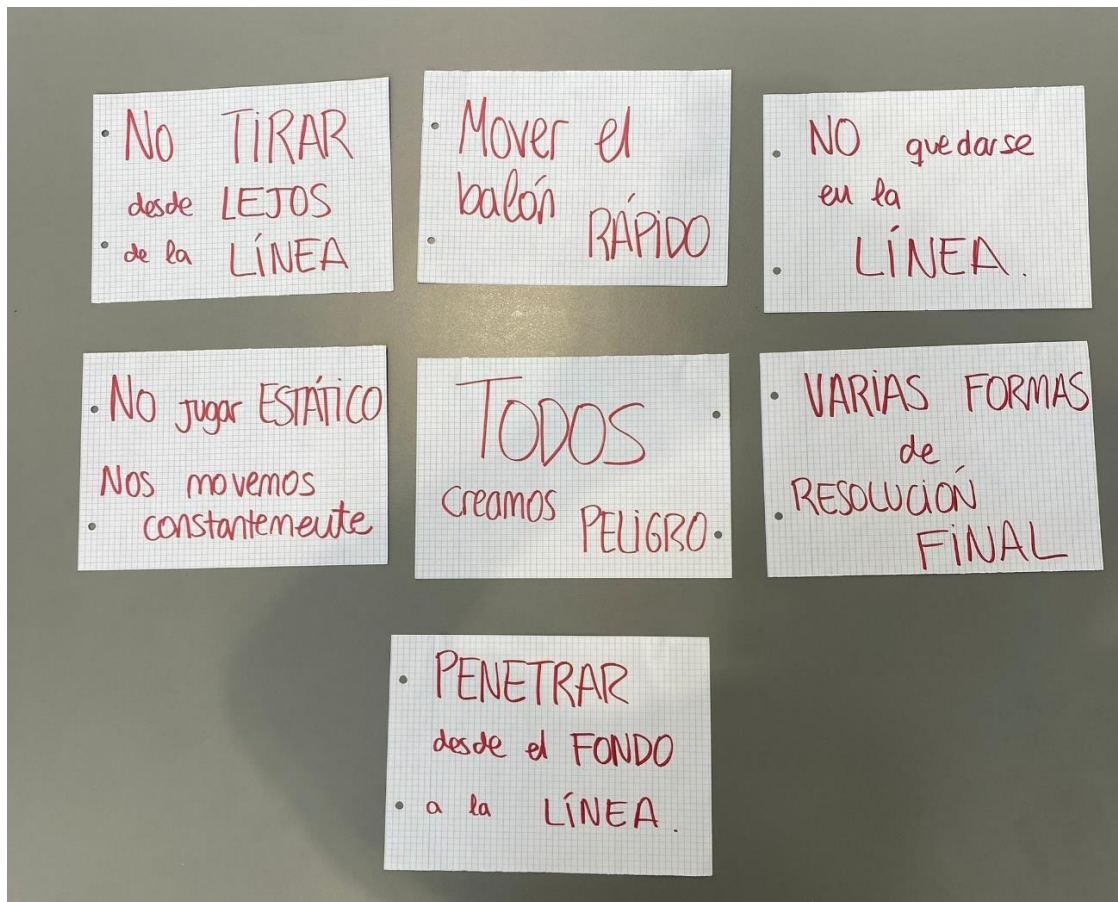 No TIRAR
desde LEJOS
de la LÍNEA
Mover el
balón RÁPIDO
NO quedarse
en la
LÍNEA.
No jugar ESTÁTICO
Nos movemos
constantemente
TODOS
creamos PELIGRO
VARIAS FORMAS
de
RESOLUCIÓN
FINAL
PENETRAR
desde el FONDO
a la LÍNEA.